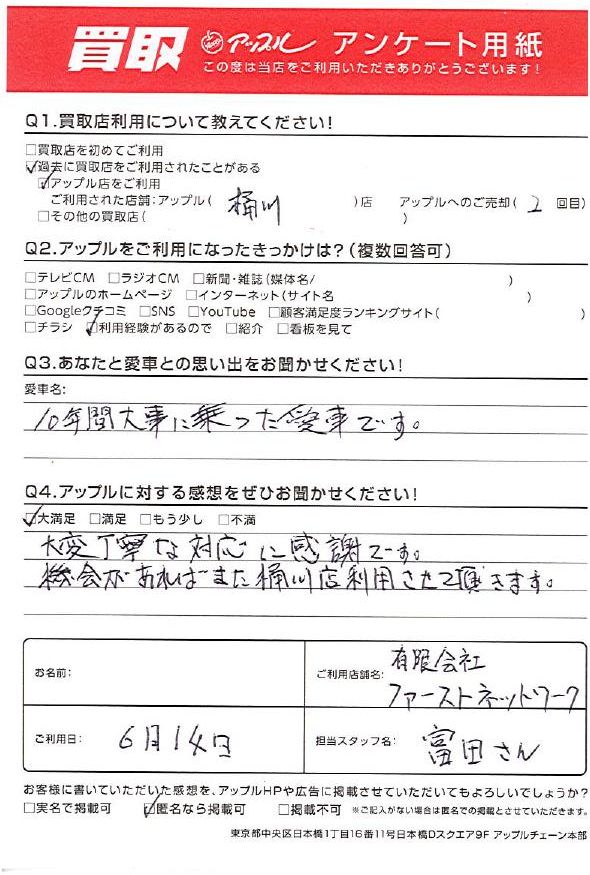 買取 Apple アップル アンケート用紙
この度は当店をご利用いただきありがとうございます!
Q1.買取店利用について教えてください!
□買取店を初めてご利用
☑過去に買取店をご利用されたことがある
☑アップル店をご利用
ご利用された店舗:アップル( 桶川 )店 アップルへのご売却( 2 回目)
□その他の買取店( )
Q2.アップルをご利用になったきっかけは?(複数回答可)
□テレビCM □ラジオCM □新聞・雑誌(媒体名/ )
□アップルのホームページ □インターネット(サイト名 )
□Googleクチコミ □SNS □YouTube □顧客満足度ランキングサイト( )
□チラシ ☑利用経験があるので □紹介 □看板を見て
Q3.あなたと愛車との思い出をお聞かせください!
愛車名:
10年間大事に乗った愛車です。
Q4.アップルに対する感想をぜひお聞かせください!
☑大満足 □満足 □もう少し □不満
大変丁寧な対応に感謝です。
機会があればまた桶川店利用させて頂きます。
お名前: ご利用店舗名: 有限会社
ファーストネットワーク
ご利用日: 6月14日 担当スタッフ名: 富田さん
お客様に書いていただいた感想を、アップルHPや広告に掲載させていただいてもよろしいでしょうか?
□実名で掲載可 ☑匿名なら掲載可 □掲載不可 ※ご記入がない場合は匿名での掲載とさせていただきます。
東京都中央区日本橋1丁目16番11号日本橋Dスクエア9F アップルチェーン本部